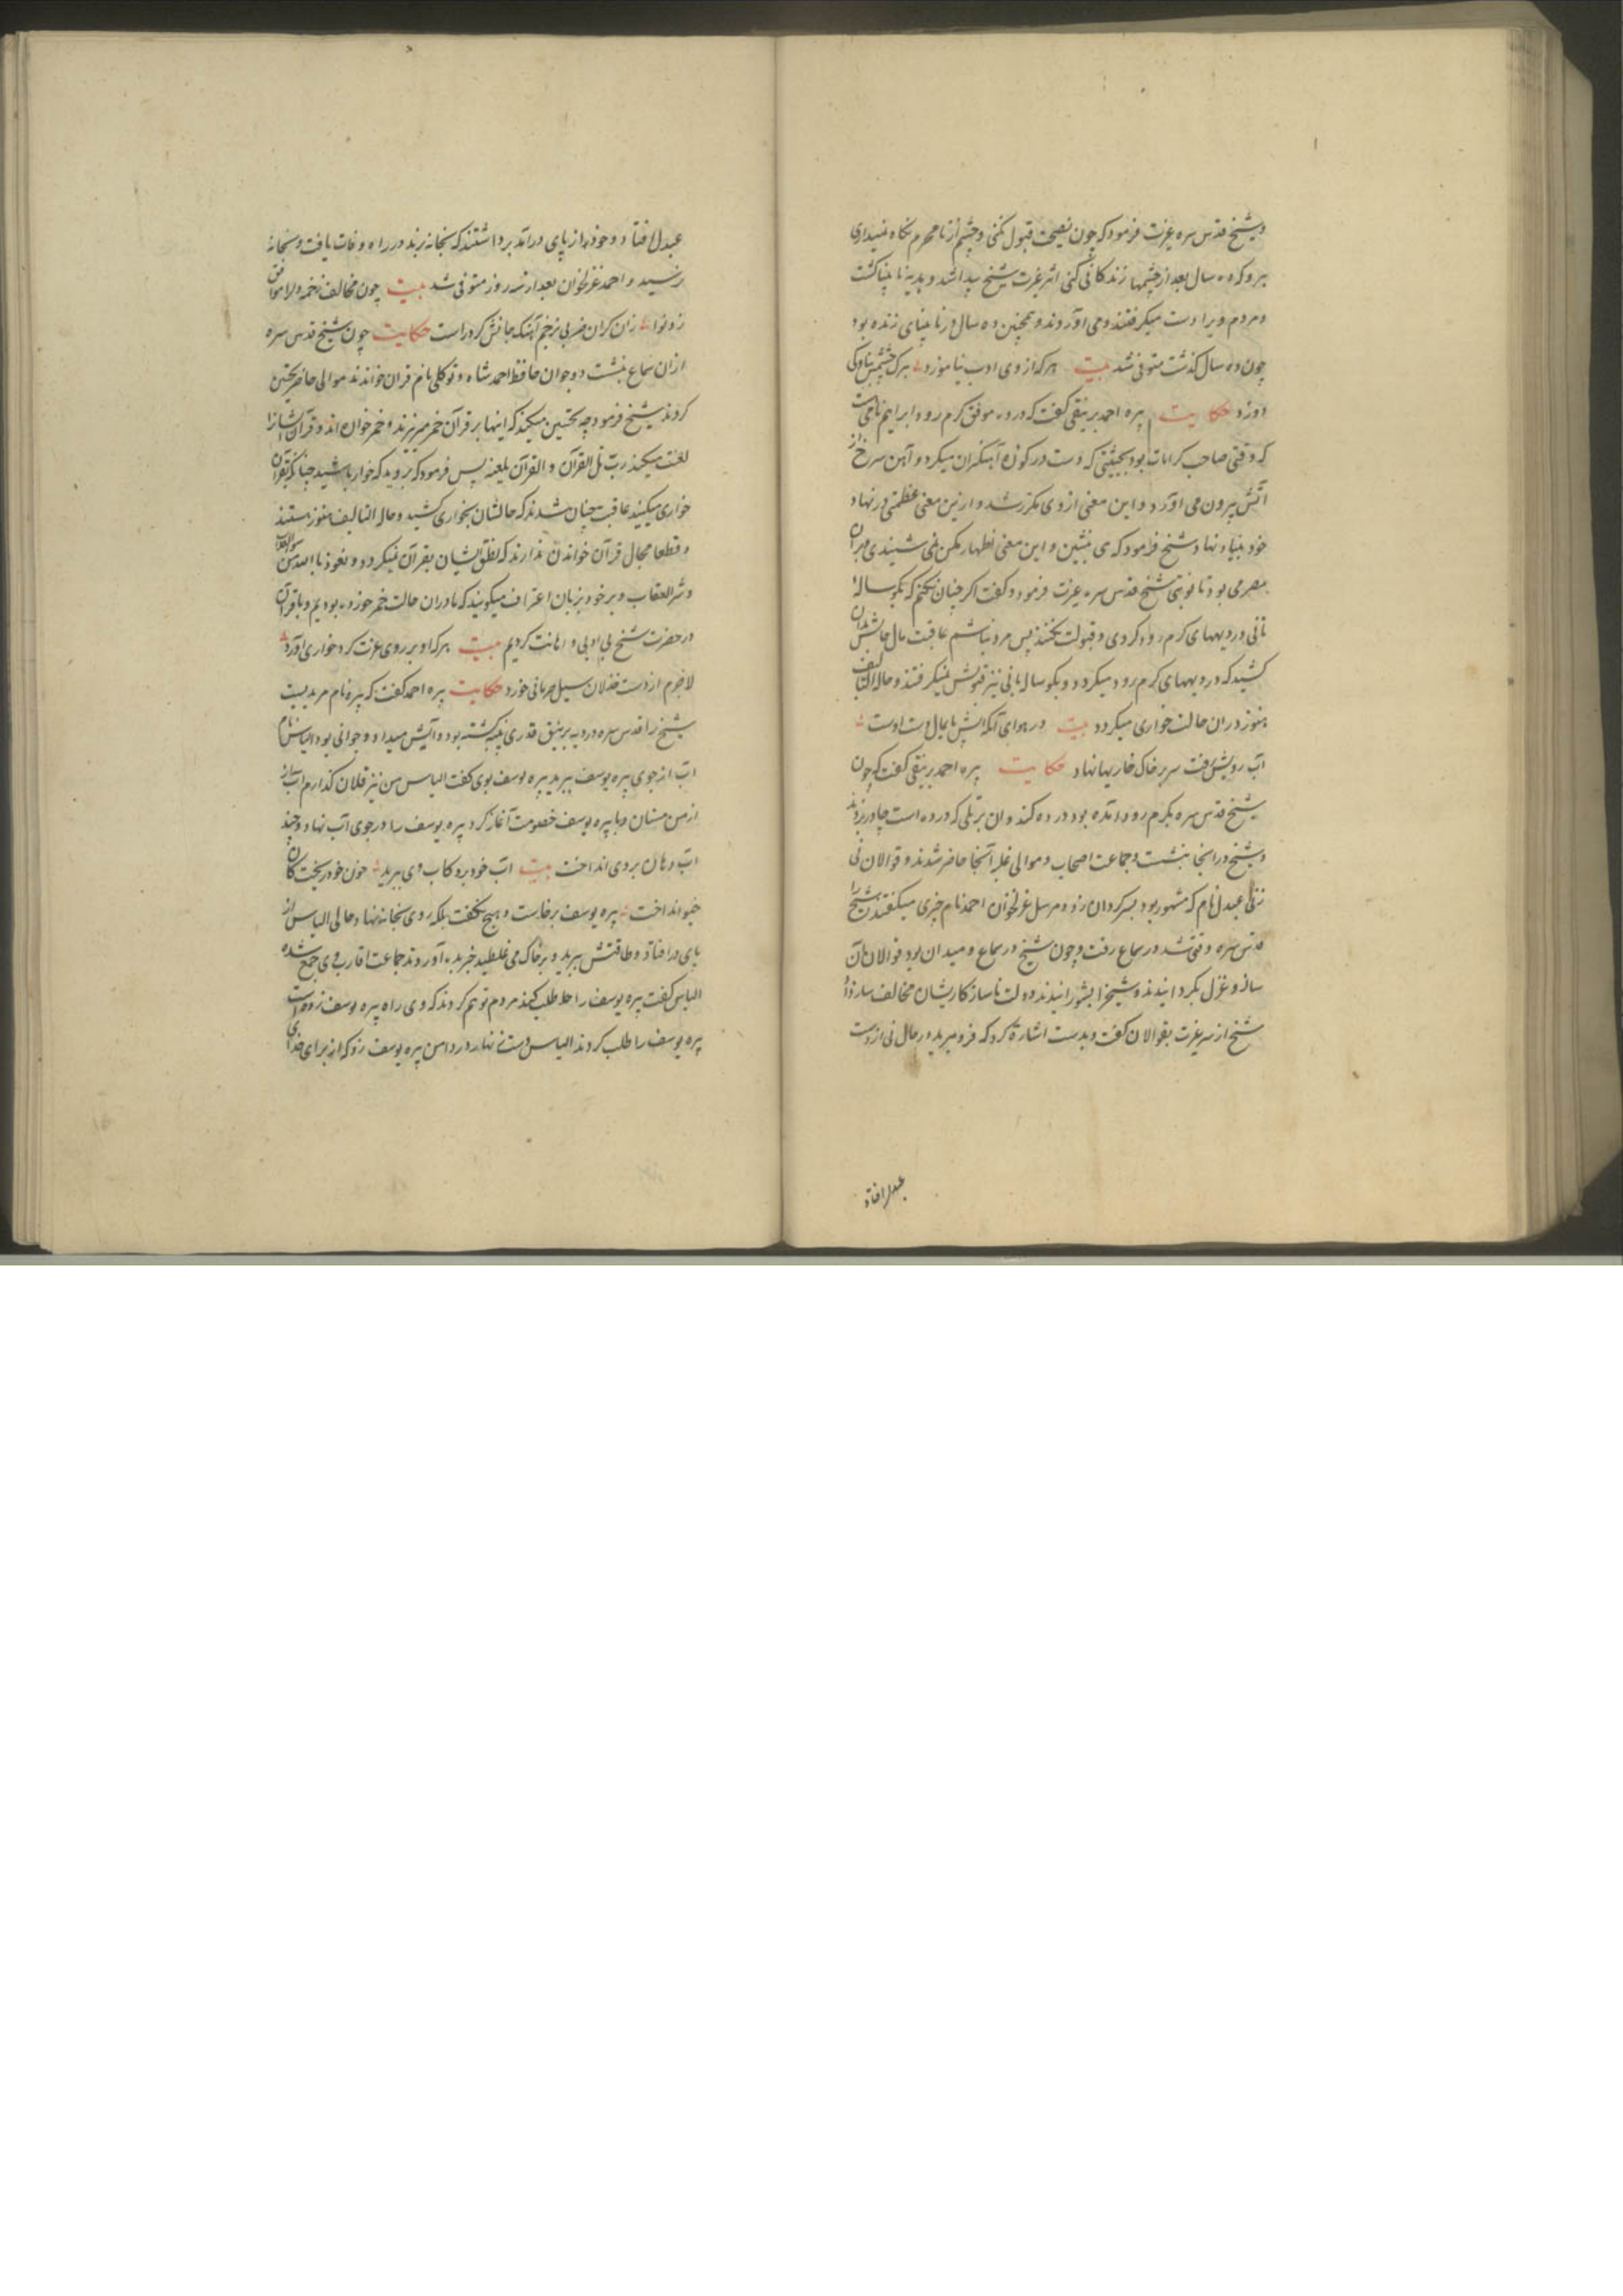 وشیخ قدس سره غیرت فرمود که چون نصیحت قبول نکنی و چشم از نامحرم نکاه نمیداری
برو که ده سال بعد از چشمها زندکانی کنی اثر غیرت شیخ پیدا شد و پیره نابینا کشت
و مردم ویرا دست میکرفتند و می آوردند و همچنین ده سال در نابینای زنده بود
چون ده سال کذشت متوفی شد بیت هر که از وی ادب نیاموزد
دوزد حکایت پیره احمد برنیقی کفت که در ده موفق کرم رود ابراهیم نامی
که وقتی صاحب کرامات بود بحیثیتی که دست در کوزه آهنکران میکرد و آهن سرخ از
آتش بیرون می آورد و این معنی از وی مکرر شد و ازین معنی عظمتی در نهاد
خود بنیاد نهاد شیخ فرمود که می بنشین و این معنی اظهار مکن نمی شنید و بران
مصر می بود تا نوبتی شیخ قدس سره غیرت فرمود و کفت اکر چنان نکنم که بکوساله
نانی در دیههای کرم رود کردی و قبولت نکنند پس مرد نباشم عاقبت مال حالش بدان
کشید که در دیههای کرم رود میکردد و بکوساله بانی نیز قبولش نمیکرفتند و حاله التالیف
هنوز در آن حالت خواری میکردد بیت در هوای آنکه آتش پایمال دست اوست
آب رویش رفت سر بر خاک خاریها نهاد حکایت پیره احمد برنیقی کفت که چون
شیخ قدس سره بکرم رود آمده بود در ده کندوان بر تلی که در ده است چادر بزدند
و شیخ در آنجا بنشست و جماعت اصحاب و موالی غلبه آنجا حاضر شدند و قوالان نی
عبدل نام که مشهور بود بسرکردان زد و مرسل غزلخوان احمد نام چیزی میکفتند شیخ را
قدس سره وقتی شد در سماع رفت و چون شیخ در سماع و میدان بود قوالان آن
ساز و غزل بکردانیدند و شیخ را بشورانیدند و دولت ناساز کار ایشان مخالف ساز
شیخ از سر غیرت بقوالان کفت و بدست اشارة کرد که فرو میرید در حال نی از دست
عبدل افتاد
عبدل افتاد و خود از پای درآمد برداشتند که بخانه برند در راه وفات یافت و بخانه
نرسید و احمد غزلخوان بعد از سه روز متوفی شد بیت چون مخالف زخمه
زد نوا زان کران ضربی بزخم آهنک جانش کرد راست حکایت چون شیخ قدس سره
از آن سماع بنشست دو جوان حافظ احمد شاه و توکلی نام قرآن خواندند موالی حاضر تحسین
کردند شیخ فرمود چه تحسین میکنید که اینها بر قرآن خمر میریزند و خمر خواره اند و قرآن ایشانرا
لعنت میکند رب تال القرآن و القرآن یلعنه پس فرمود که بروید که خوار باشید چنانکه بقرآن
خواری میکنید عاقبت چنان شدند که حالشان بخواری کشید و حال التالیف هنوز هستند
و قطعا مجال قرآن خواندن ندارند که نطق ایشان بقرآن نمیکردد و نعوذ بالله من
و شر العقاب و بر خود بزبان اعتراف میکویند که ما در آن حالت خمر خورده بودیم و با قرآن
در حضرت شیخ بی ادبی و اهانت کردیم بیت هر که او بر روی عزت کرد خواری آورد
لاجرم از دست خذلان سیل حرمانی خورد حکایت پیره احمد کفت که پیره نام مریدیست
شیخ را قدس سره در دیه برنیق قدری پنبه کشته بود و آبش میداد و جوانی بود الیاس نام
آب از جوی پیره یوسف ببرید پیره یوسف بوی کفت الیاس من نیز فلان کذارم آب باز
از من مستان و با پیره یوسف خصومت آغاز کرد پیره یوسف را در جوی آب نهاد و چند
آب دهان بر وی انداخت بیت آب خود برد کاب وی ببرید خون خود ریخت کان
خیو انداخت پیره یوسف برخاست و هیچ نکفت بلکه روی بخانه نهاد و حالی الیاس از
پای درافتاد و طاقتش ببرید و بر خاک می غلطید خبر بده آوردند جماعت اقارب وی جمع شده
الیاس کفت پیره یوسف را حلا طلب کنید مردم توهم کردند که وی راه پیره یوسف زده است
پیره یوسف را طلب کردند الیاس دست زنهار در دامن پیره یوسف زد که از برای خدای